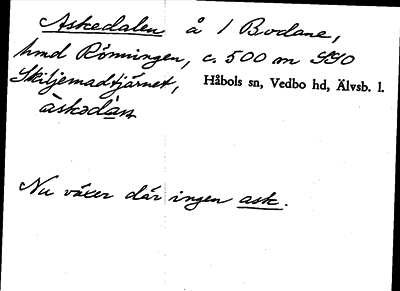 Askedalen å 1 Bodane,
hmd Rönningen, c. 500 m SSO
Skiljemadtjärnet,
Håbols sn, Vedbo hd, Älvsb. l.
àskədàn
Nu växer där ingen ask.